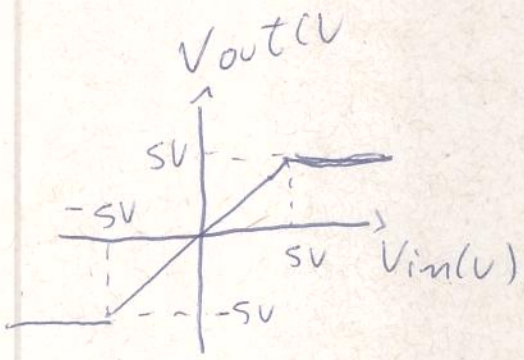 Vout(V
5V
-5V
5V Vin(V)
-5V